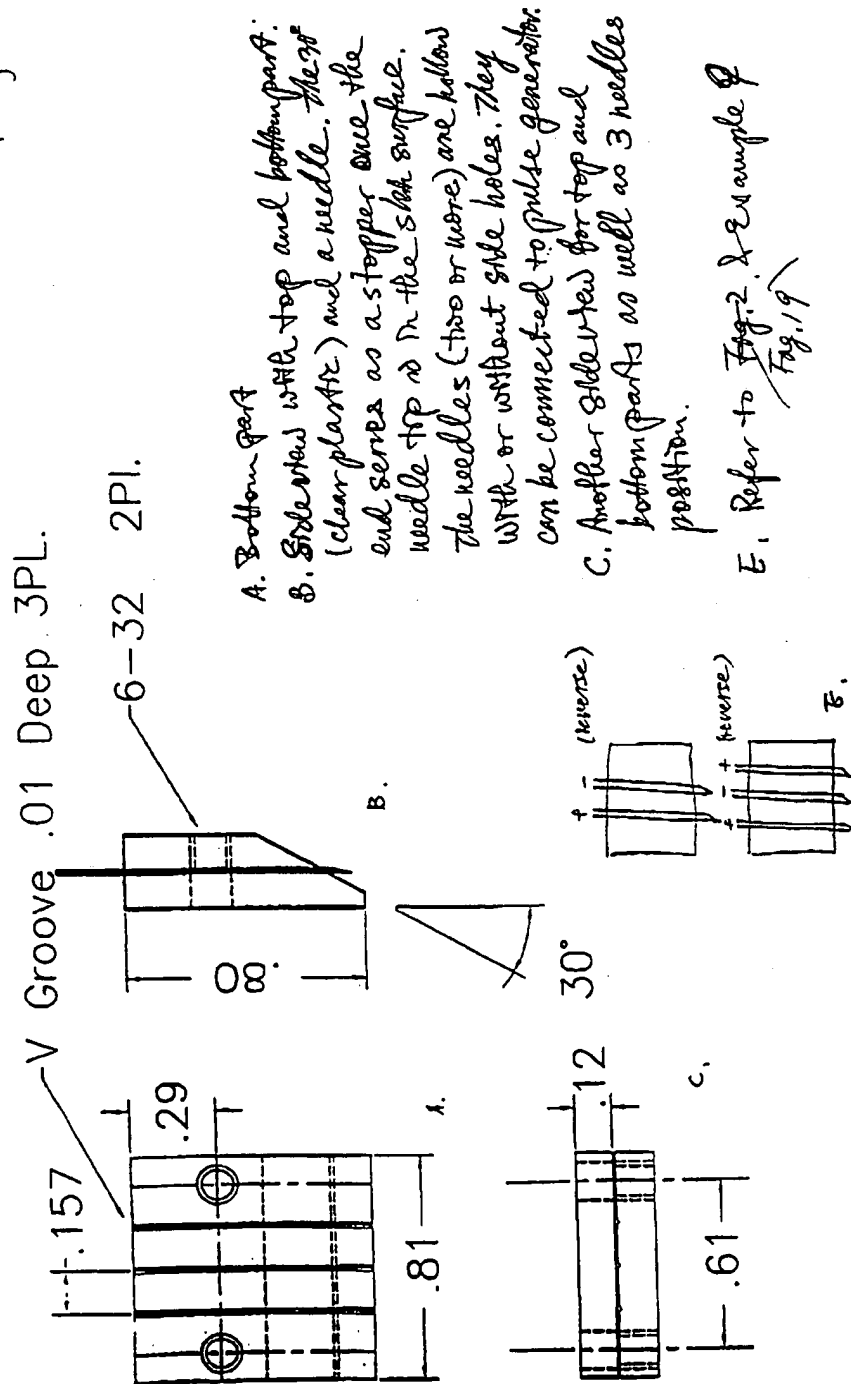 V Groove .01 Deep 3PL.
.157
.29
6-32 2Pl.
.80
.81
A.
B.
30°
.12
.61
C.
+ - (reverse)
+ - + (reverse)
E.
A. Bottom part
B. Sideview with top and bottom part.
(clear plastic) and a needle. the 30°
end serves as a stopper once the
needle tip is in the skin surface.
the needles (two or more) are hollow
with or without side holes. They
can be connected to pulse generator.
C. Another sideview for top and
bottom parts as well as 3 needles
position.
E. Refer to Fig. 2. & Example 9
Fig. 19